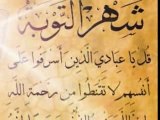 شهر التوبة
قل يا عبادي الذين أسرفوا على
أنفسهم لا تقنطوا من رحمة الله